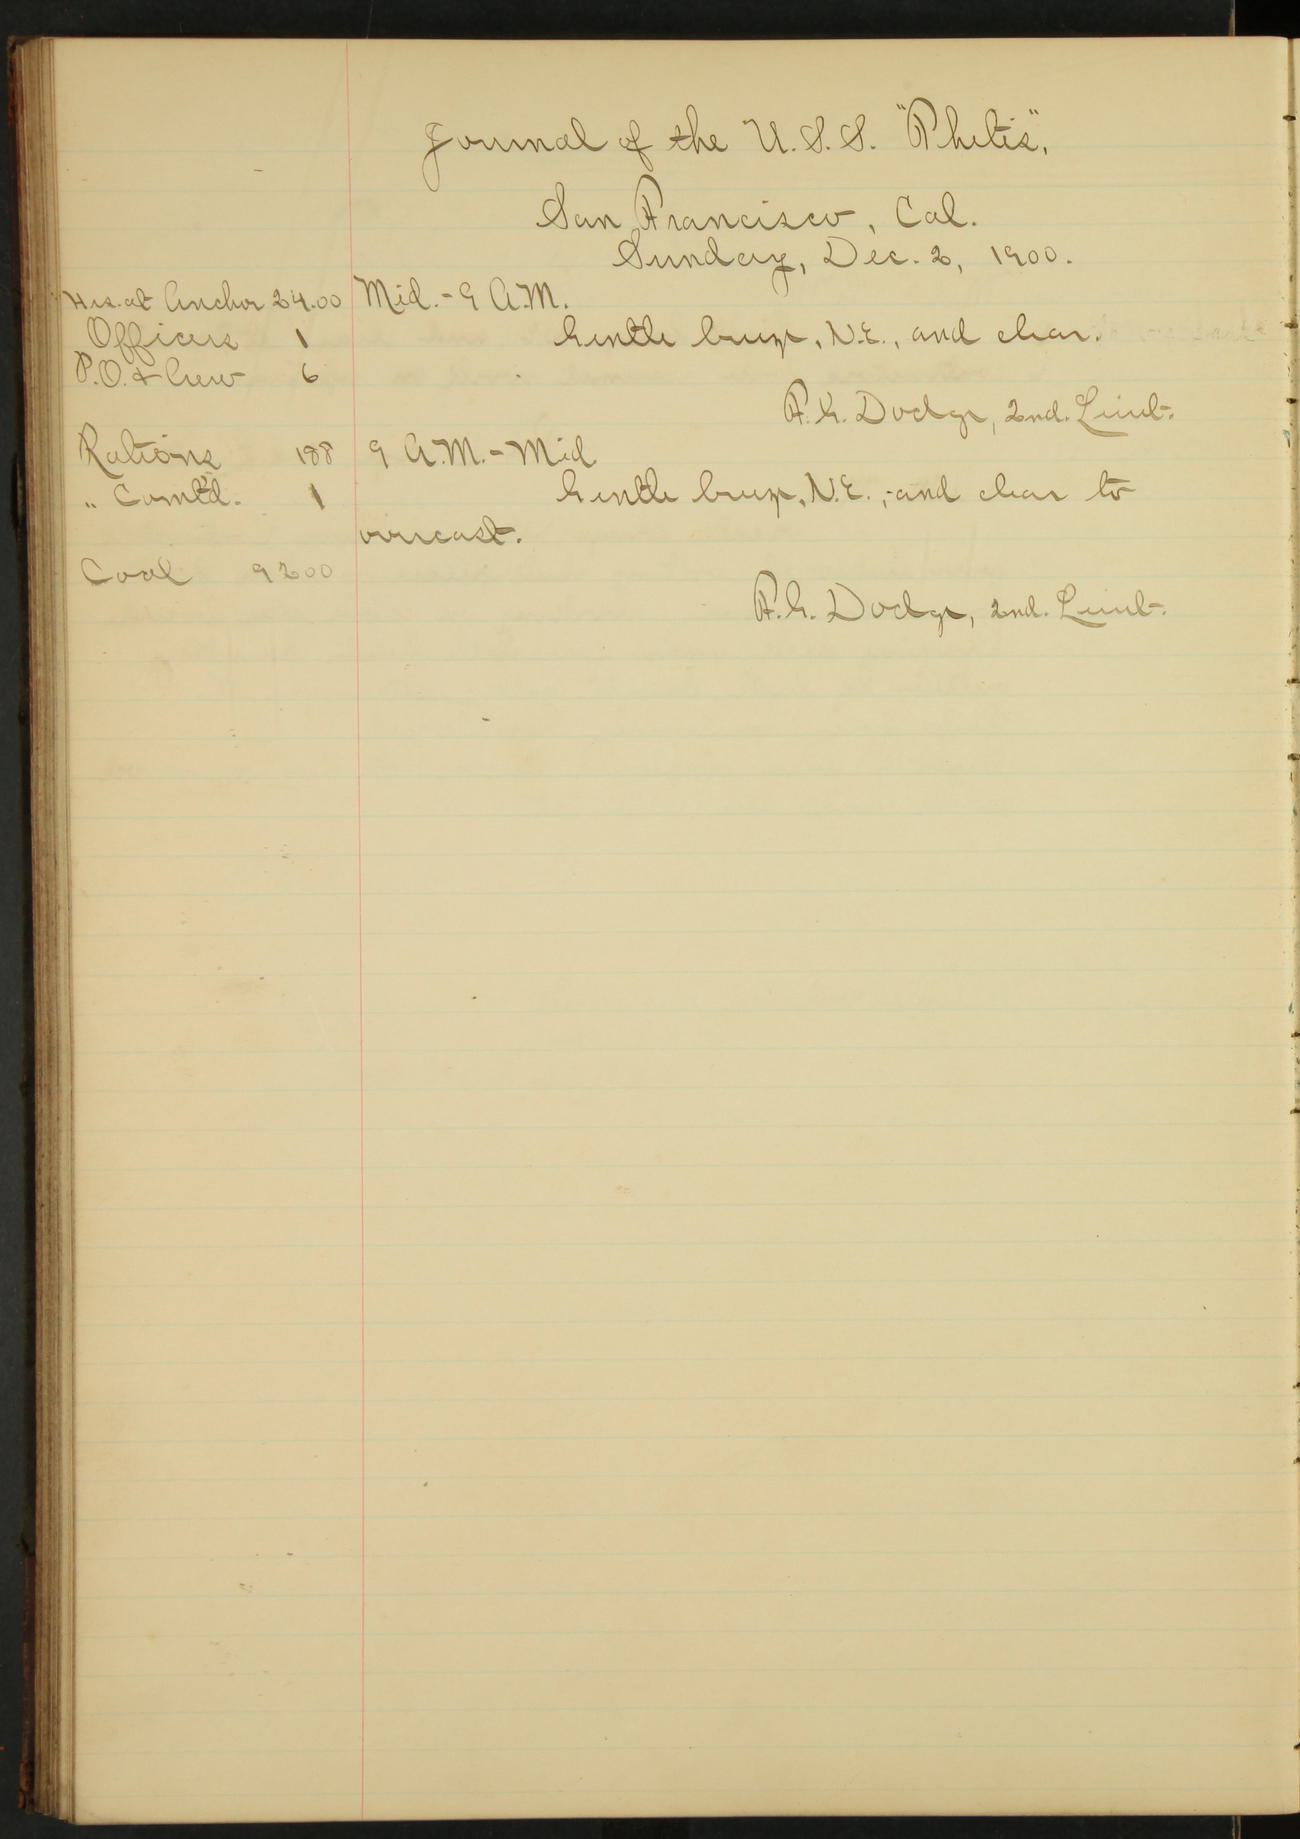 Journal of the U.S.S. "Thetis",
San Francisco, Cal.
Sunday, Dec. 2, 1900.
Hrs. at Anchor 24.00 Mid. - 9 A.M.
Officers 1 Gentle breeze, N.E., and clear.
P.O. & Crew 6
F.G. Dodge, 2nd. Lieut.
Rations 188 9 A.M. - Mid
" Comt'd. 1 Gentle breeze, N.E., and clear to
overcast.
Coal 9200
F.G. Dodge, 2nd. Lieut.